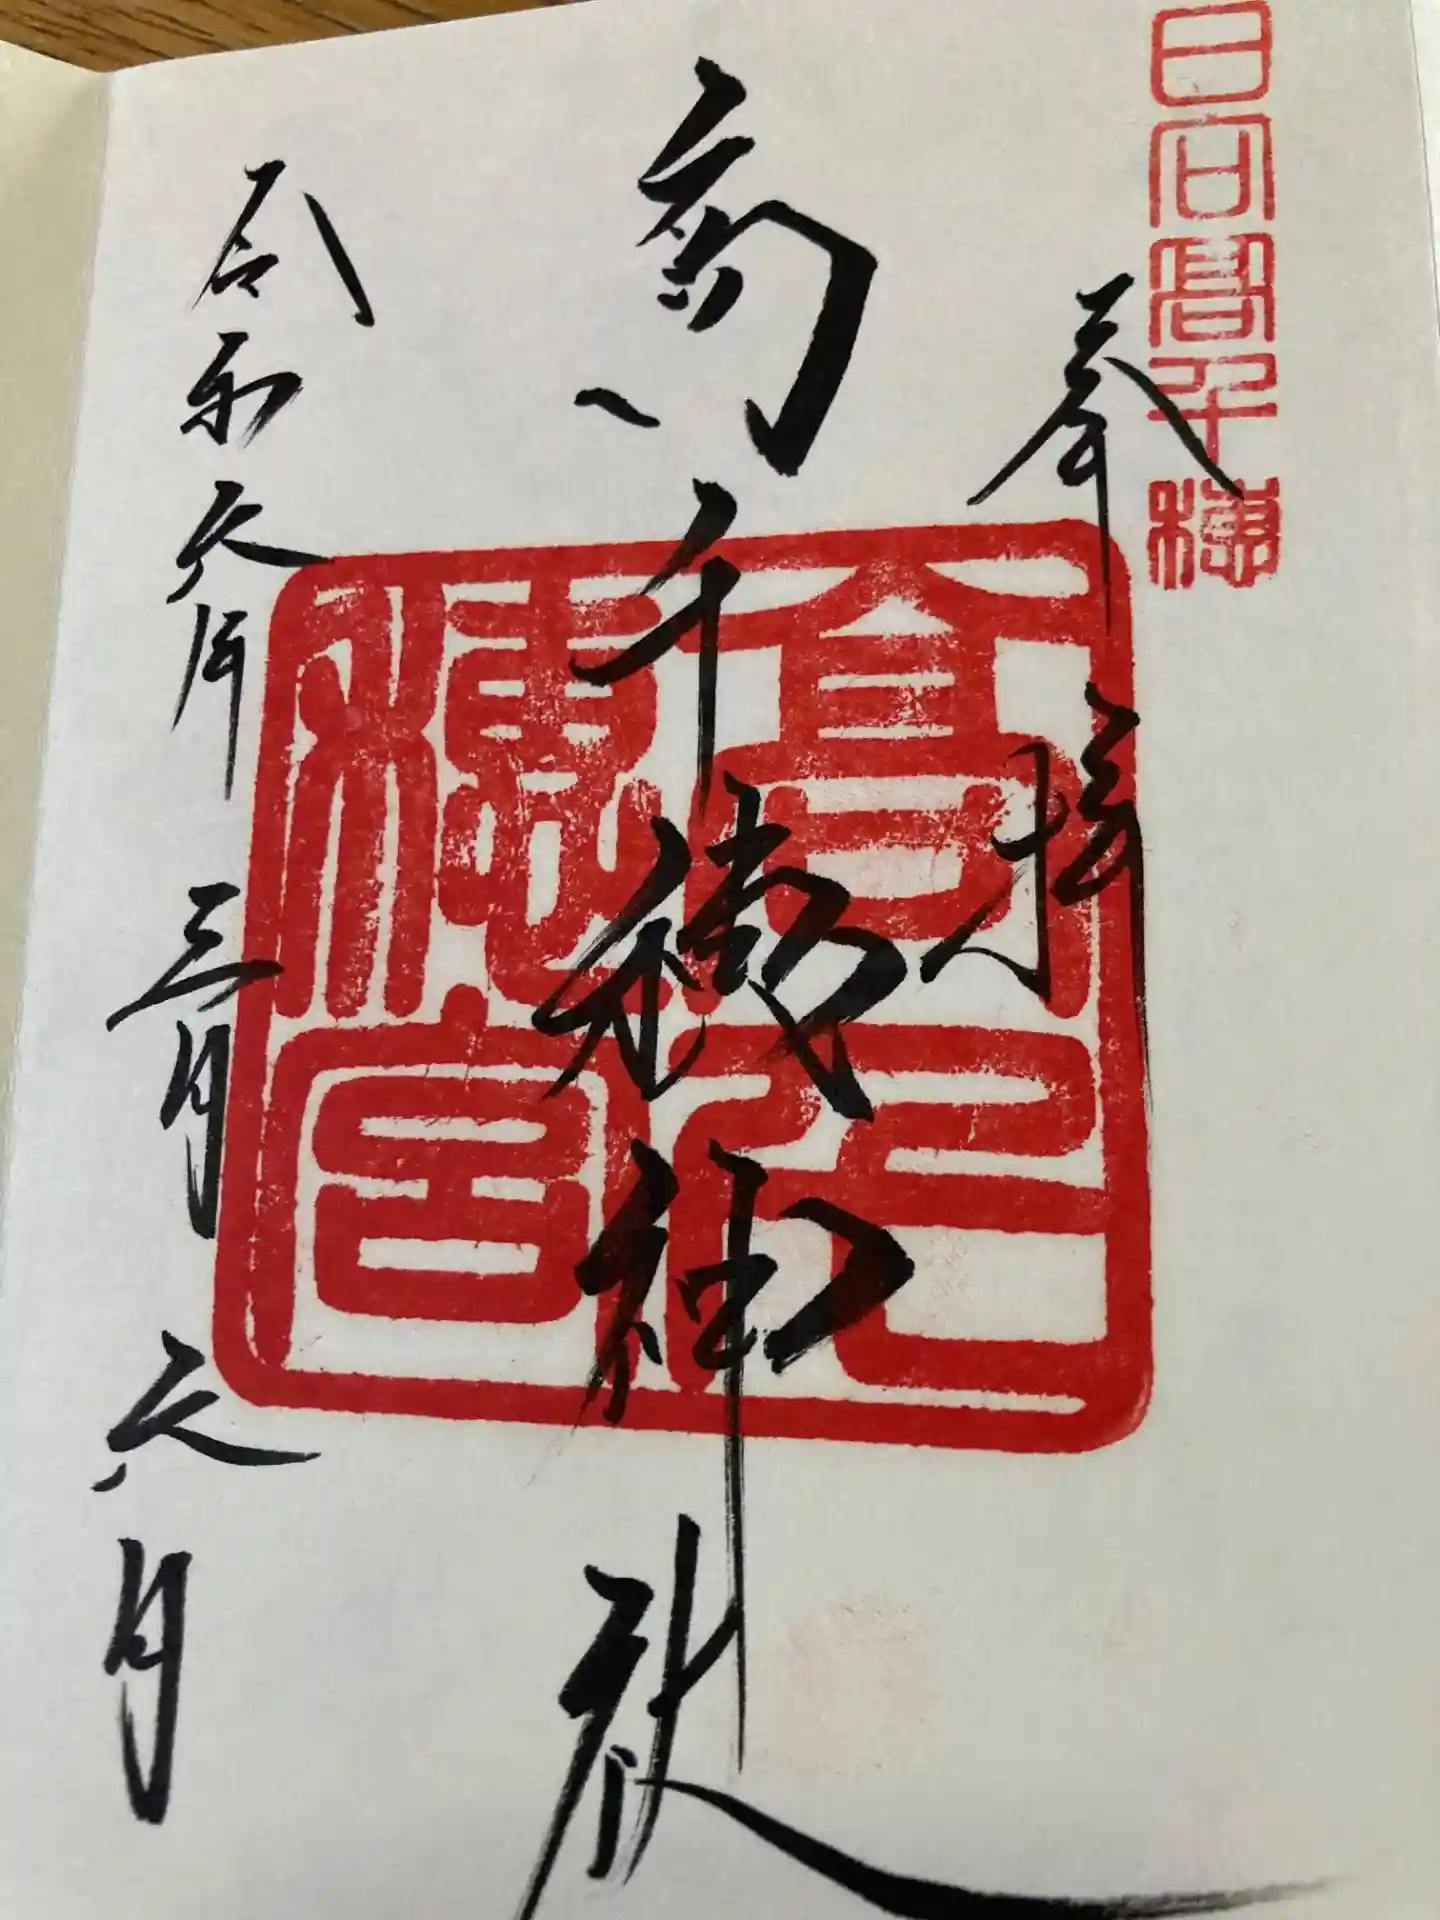 日向高千穂
奉拝
高千穂神社
高千穂宮
令和六年三月六日